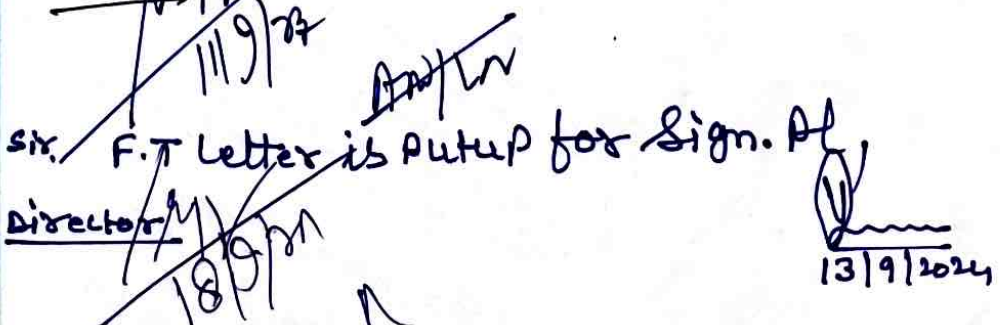 11/9/24
Sir, F.T Letter is Putup for Sign. Pl,
Director
13/9/2024
18/9/24